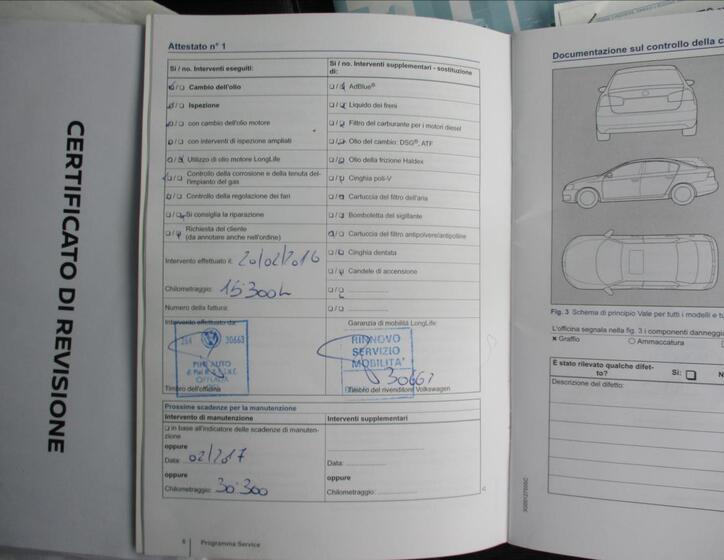 CERTIFICATO DI REVISIONE
Attestato n° 1
Sì / no. Interventi eseguiti:
Cambio dell'olio
Ispezione
con cambio dell'olio motore
con interventi di ispezione ampliati
Utilizzo di olio motore LongLife
Controllo della corrosione e della tenuta dell'impianto del gas
Controllo della regolazione dei fari
Si consiglia la riparazione
Richiesta del cliente
(da annotare anche nell'ordine)
Intervento effettuato il: 20/02/2016
Chilometraggio: 15.300
Numero della fattura:
Intervento effettuato da:
30663
Timbro dell'officina
Sì / no. Interventi supplementari - sostituzione
di:
AdBlue®
Liquido dei freni
Filtro del carburante per i motori diesel
Olio del cambio: DSG®, ATF
Olio della frizione Haldex
Cinghia poli-V
Cartuccia del filtro dell'aria
Bomboletta del sigillante
Cartuccia del filtro antipolvere/antipolline
Cinghia dentata
Candele di accensione
Garanzia di mobilità LongLife:
RINNOVO
SERVIZIO
MOBILITA'
30663
Timbro del rivenditore Volkswagen
Prossime scadenze per la manutenzione
Intervento di manutenzione
in base all'indicatore delle scadenze di manuten-
zione
oppure
Data: 02/2017
oppure
Chilometraggio: 30.300
Interventi supplementari
Data:
oppure
Chilometraggio:
6 Programma Service
Documentazione sul controllo della
Fig. 3 Schema di principio Vale per tutti i modelli e
L'officina segnala nella fig. 3 i componenti
Graffio
Ammaccatura
È stato rilevato qualche difet-
to?
Sì:
Descrizione del difetto: